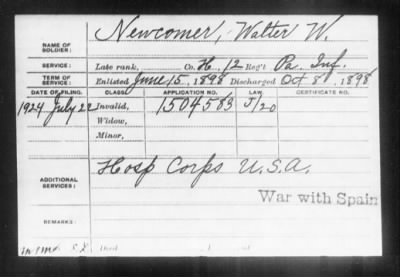 Newcomer, Walter W.
NAME OF SOLDIER:
SERVICE: Late rank, Co. H, 12 Reg't Pa. Inf.
TERM OF SERVICE: Enlisted June 15, 1898 Discharged Oct 8, 1898
DATE OF FILING. CLASS. APPLICATION NO. LAW. CERTIFICATE NO.
1924 July 22 Invalid, 1504583 J/20
Widow,
Minor,
Hosp Corps U.S.A.
ADDITIONAL SERVICES:
War with Spain
REMARKS: